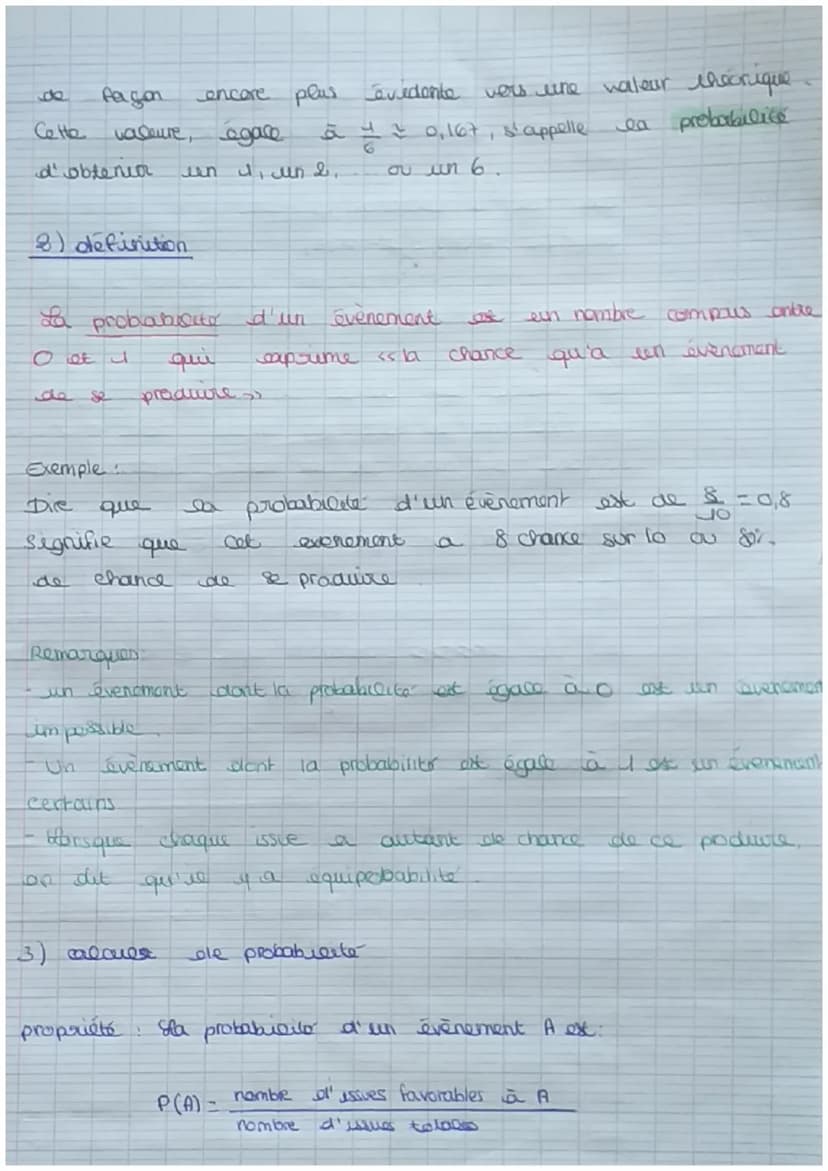 de façon encore plus évidente vers une valeur théorique.
Cette valeure, égale à 1/6 ≈ 0,167, s'appelle la probabilité
d'obtenir un 1, un 2, ... ou un 6.
2) définition
La probabilité d'un évènement est un nombre compris entre
0 et 1 qui exprime «la chance qu'a un évènement
de se produire»
Exemple :
Dire que la probabilité d'un évènement est de 8/10 = 0,8
signifie que cet evenement a 8 chance sur 10 ou 80%
de chance de se produire
Remarques:
- un évenement dont la probabilité est égale à 0 est un évenement
impossible.
- Un évènement dont la probabilité est égale à 1 est un évenement
certains
- lorsque chaque issue a autant de chance de ce produire,
on dit qu'il y a équiprobabilité.
3) calcules de probabilité
propriété : La probabilité d'un évènement A est:
P(A) = nombre d'issues favorables à A
nombre d'issues totales